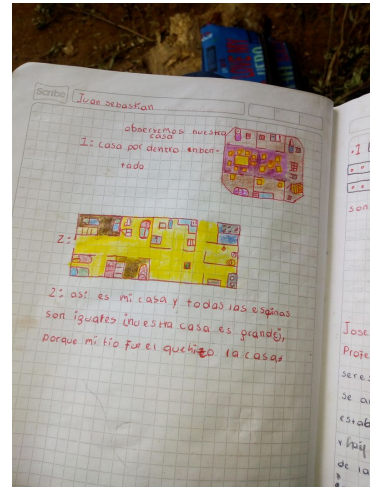 Scribe
Juan sebastian
observemos nuestra
casa
1: casa por dentro inben-
tado
2:
2: asi es mi casa y todas las esqinas
son iguales inuestra casa es grande,
porque mi tio fue el quehizo la casa
.1
son
Jose
Profe
seres
se a
estab
hay
de la